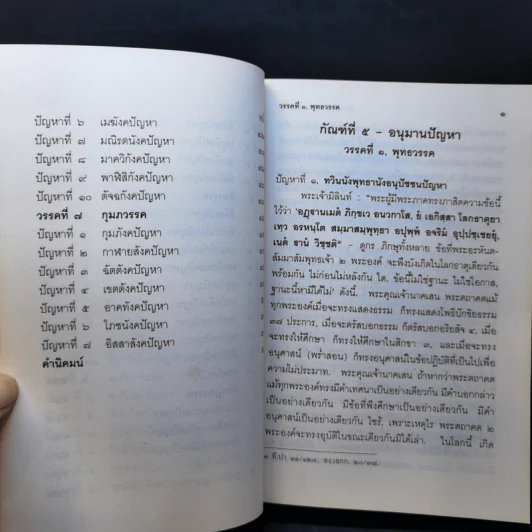 ปัญหาที่ ๖ เมฆังคปัญหา
ปัญหาที่ ๗ มณิรตนังคปัญหา
ปัญหาที่ ๘ มาควิกังคปัญหา
ปัญหาที่ ๙ พาฬิสิกังคปัญหา
ปัญหาที่ ๑๐ ตัจฉกังคปัญหา
วรรคที่ ๗ กุมภวรรค
ปัญหาที่ ๑ กุมภังคปัญหา
ปัญหาที่ ๒ กาฬายสังคปัญหา
ปัญหาที่ ๓ ฉัตตังคปัญหา
ปัญหาที่ ๔ เขตตังคปัญหา
ปัญหาที่ ๕ อาคทังคปัญหา
ปัญหาที่ ๖ โภชนังคปัญหา
ปัญหาที่ ๗ อิสสาสังคปัญหา
คำนิคมน์
วรรคที่ ๑. พุทธวรรค ๑
กัณฑ์ที่ ๕ - อนุมานปัญหา
วรรคที่ ๑. พุทธวรรค
ปัญหาที่ ๑. ทวินนังพุทธานังอนุปัชชนปัญหา
พระเจ้ามิลินท์ : "พระผู้มีพระภาคทรงภาสิตความข้อนี้
ไว้ว่า 'อฏฺฐานเมตํ ภิกฺขเว อนวกาโส, ยํ เอกิสฺสา โลกธาตุยา
เทฺว อรหนฺโต สมฺมาสมฺพุทฺธา อปุพฺพํ อจริมํ อุปฺปชฺเชยฺยุํ,
เนตํ ฐานํ วิชฺชติ" - ดูกร ภิกษุทั้งหลาย ข้อที่พระอรหันต-
สัมมาสัมพุทธเจ้า ๒ พระองค์ จะพึงบังเกิดในโลกธาตุเดียวกัน
พร้อมกัน ไม่ก่อนไม่หลังกัน ใด, ข้อนี้ไม่ใช่ฐานะ ไม่ใช่โอกาส,
ฐานะนี้หามีได้ไม่' ดังนี้. พระคุณเจ้านาคเสน พระตถาคตแม้
ทุกพระองค์เมื่อจะทรงแสดงธรรม ก็ทรงแสดงโพธิปักขิยธรรม
๓๗ ประการ, เมื่อจะตรัสบอกธรรม ก็ตรัสบอกอริยสัจ ๔, เมื่อ
จะทรงให้ศึกษา ก็ทรงให้ศึกษาในสิกขา ๓, และเมื่อจะทรง
อนุศาสน์ (พร่ำสอน) ก็ทรงอนุศาสน์ในข้อปฏิบัติที่เป็นไปเพื่อ
ความไม่ประมาท. พระคุณเจ้านาคเสน ถ้าหากว่าพระตถาคต
แม้ทุกพระองค์ทรงมีคำเทศนาเป็นอย่างเดียวกัน มีคำบอกกล่าว
เป็นอย่างเดียวกัน มีข้อที่พึงศึกษาเป็นอย่างเดียวกัน มีคำ
อนุศาสน์เป็นอย่างเดียวกัน ไซร้, เพราะเหตุไร พระตถาคต ๒
พระองค์จะทรงอุบัติในขณะเดียวกันมิได้เล่า. ในโลกนี้ เกิด
๑ ที.ปา. ๑๑/๑๒๘, องฺ.เอกก. ๒๐/๓๗.